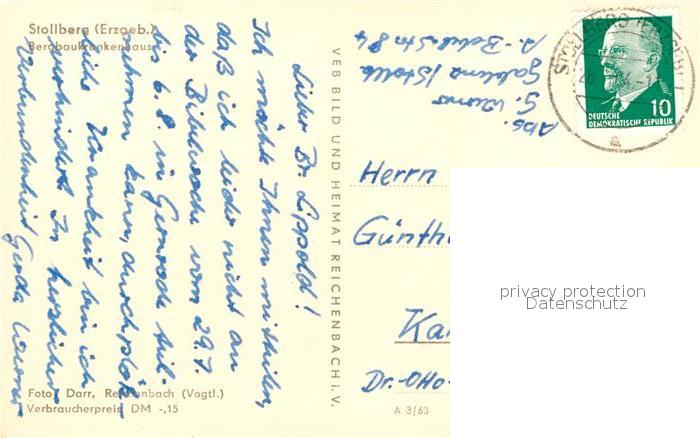 Stollberg (Erzgeb.)
Bergbaukrankenhaus
Lieber Br. Lippold!
Ich möchte Ihnen mitteilen,
daß ich leider nicht an
der Bibelwoche vom 29.7.
bis 6.8. in Gernrode teil-
nehmen kann, durch plötz-
liche Krankheit bin ich
verhindert. In herzlicher
Verbundenheit Gerda
Foto: Darr, Reichenbach (Vogtl.)
Verbraucherpreis DM -,15
VEB BILD UND HEIMAT REICHENBACH i. V.
A 3/63
Abs.
G.
STOLLBERG
10
DEUTSCHE
DEMOKRATISCHE REPUBLIK
Herrn
Günth
Ka
Dr.-Otto-
privacy protection
Datenschutz